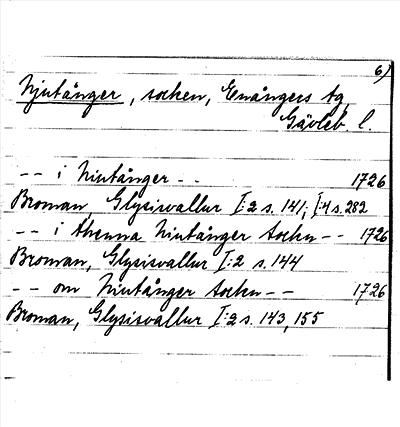 6)
Njutånger, socken, Enångers tg
Gävleb. l.
-- i Niutånger -- 1726
Broman Glysisvallur I:2 s. 141; I:4 s. 282
-- i thenna Niutånger Sockn -- 1726
Broman, Glysisvallur I:2 s. 144
-- om Niutånger Sockn -- 1726
Broman, Glysisvallur I:2 s. 143, 155